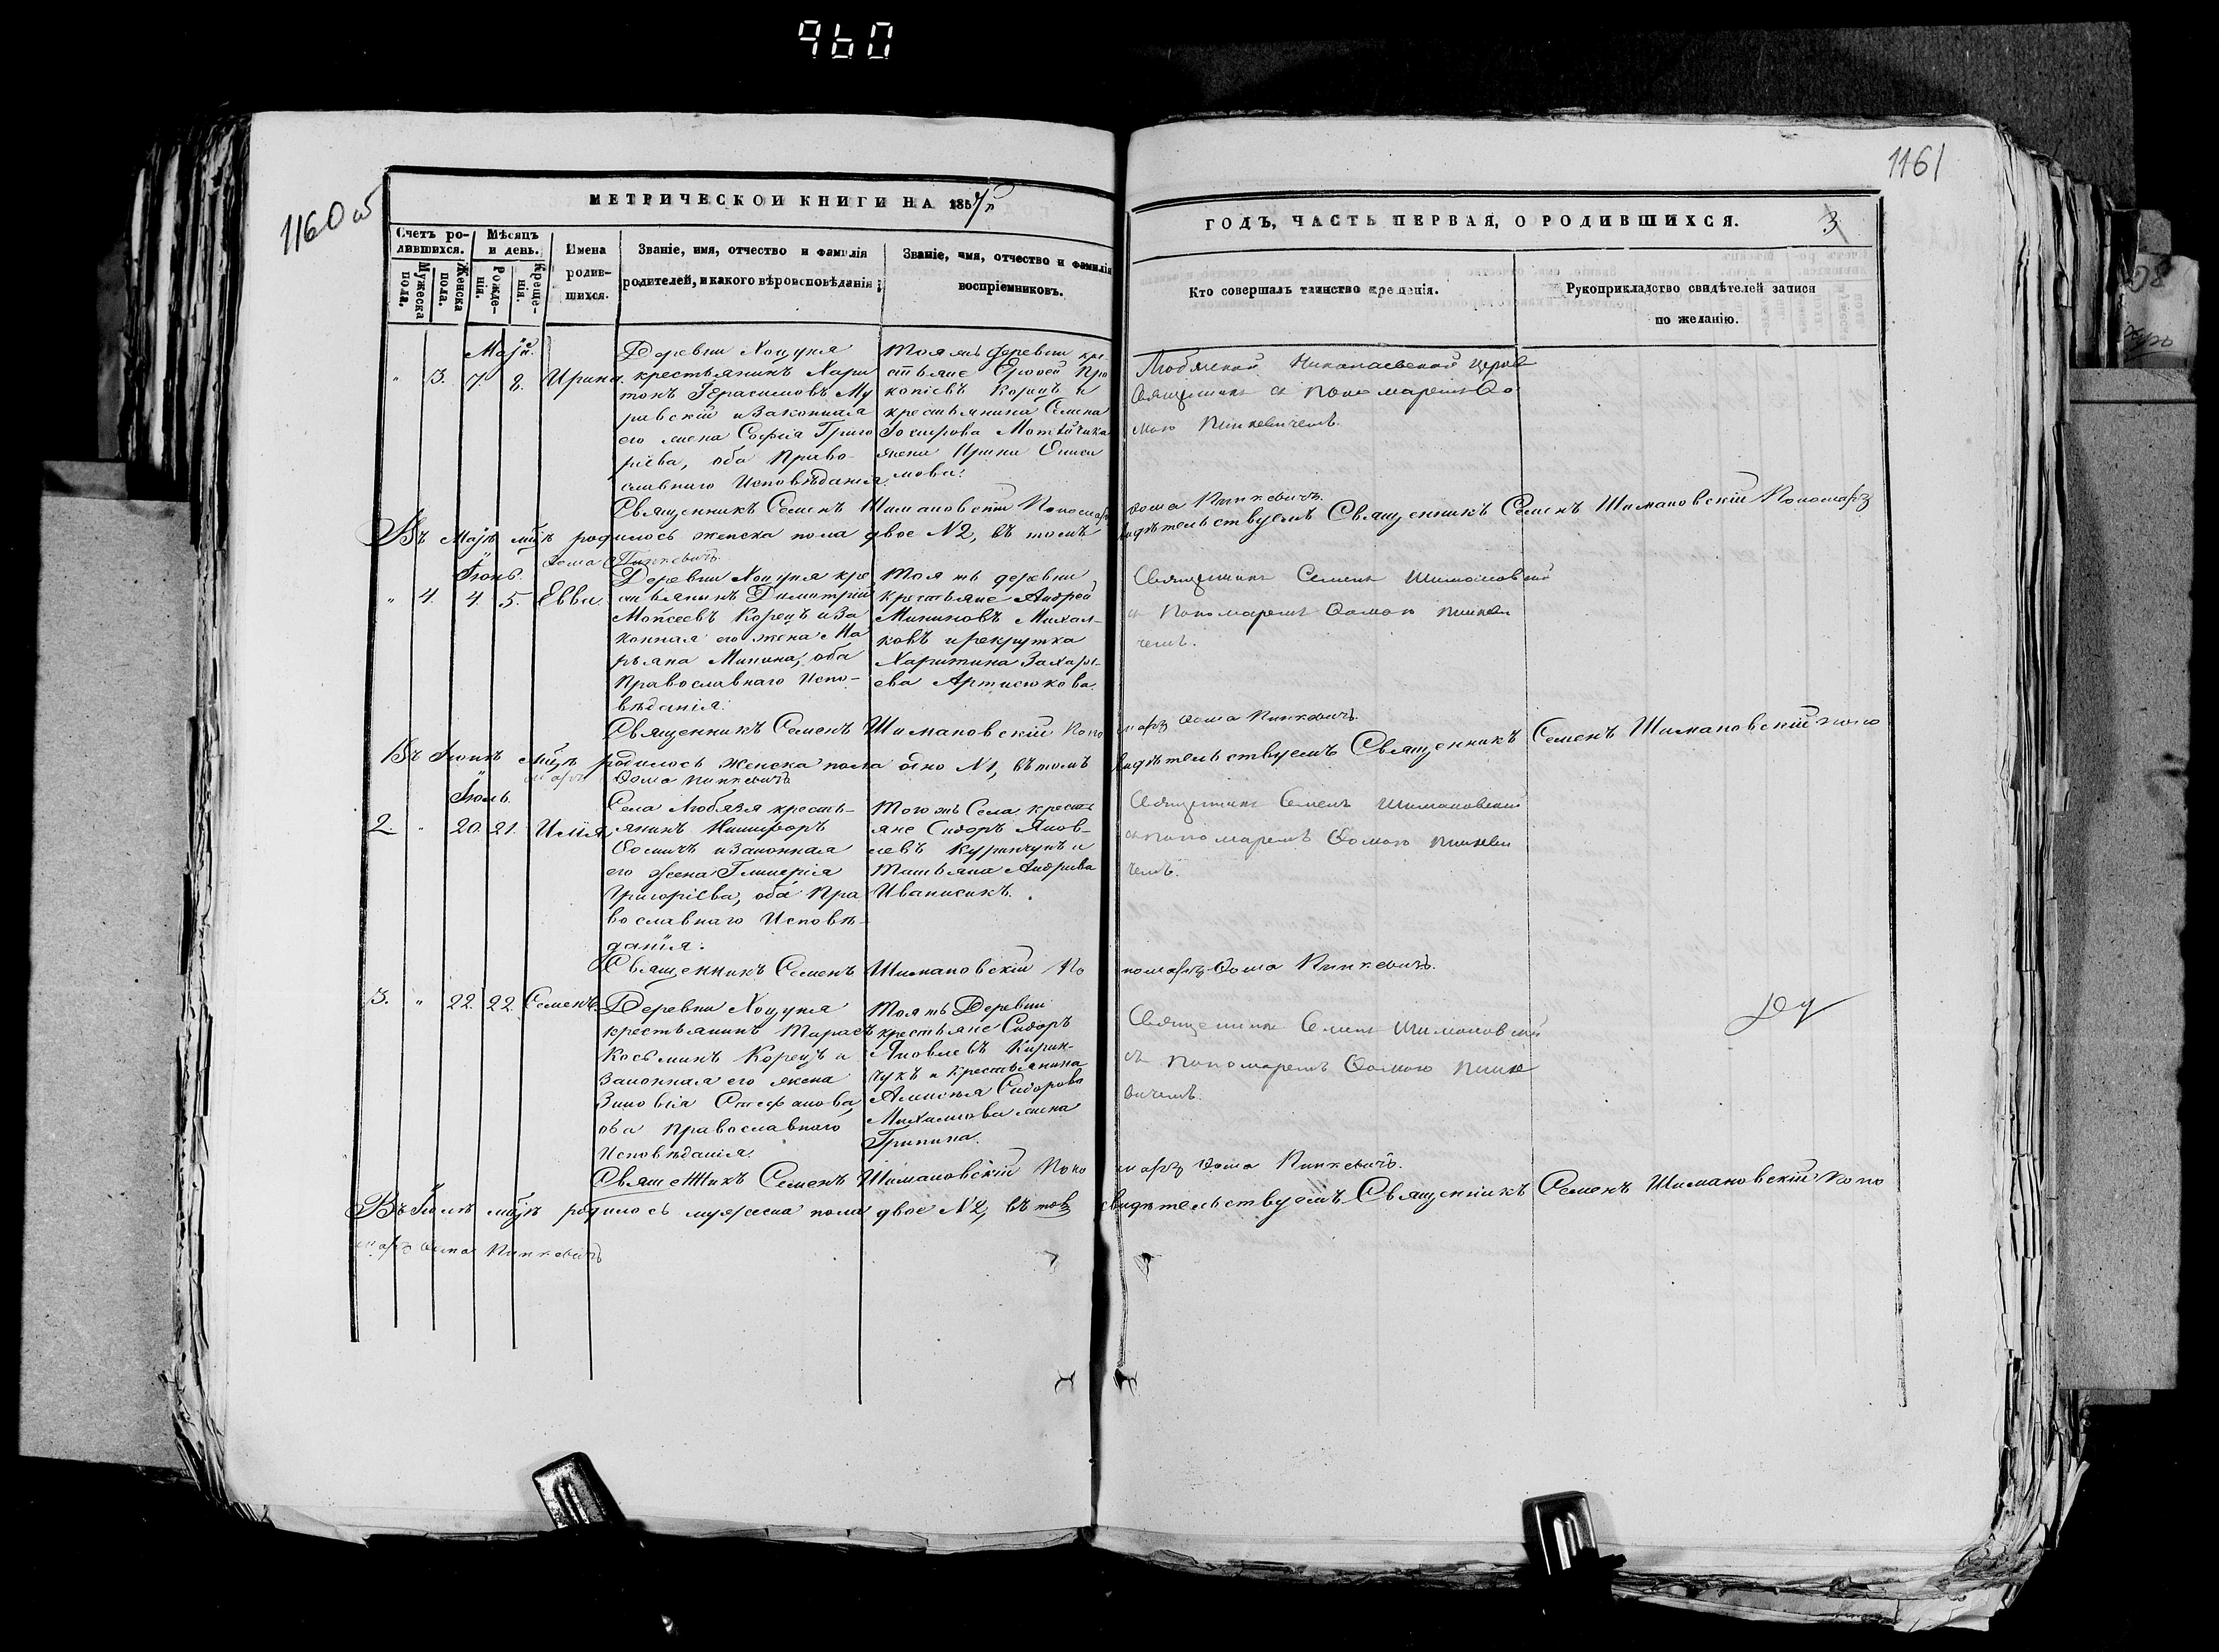 960
1160 об
1161
МЕТРИЧЕСКОЙ КНИГИ НА 1857й
ГОДЪ, ЧАСТЬ ПЕРВАЯ, О РОДИВШИХСЯ.
3
Счетъ ро-
дившихся.
Мужеска
пола.
Женска
пола.
Мѣсяцъ
и день.
Рожде-
нія.
Креще-
нія.
Имена
родив-
шихся.
Званіе, имя, отчество и фамилія
родителей, и какого вѣроисповѣданія
Званіе, имя, отчество и фамилія
воспріемниковъ.
Кто совершалъ таинство крещенія.
Рукоприкладство свидѣтелей записи
по желанію.
Маій
" 3. 7 8. Ирина
Деревни Хоцуня
крестьянинъ Хари
тонъ Герасимовъ Му
равскій и Законная
его жена Софія Григо
ріева, оба Право-
славнаго Исповѣданія
Тоя жъ деревни кре
стьяне Про
копіевъ Корецъ и
крестьянина Семена
жена Ирина
мова.
Любязской Николаевской церкви
Священникъ съ пономаремъ Ѳо
мою Пинкевичемъ.
Священникъ Семенъ Шимановскій Пономарь Ѳома Пинкевичъ.
Въ Маіѣ мцѣ родилось женска пола двое №2, въ томъ свидѣтельствуемъ Священникъ Семенъ Шимановскій Пономарь
Ѳома Пинкевичъ
Іюнь.
" 4. 4. 5. Евва
Деревни Хоцуня кре
стьянинъ Димитрій
Моисеевъ Корецъ и За
конная его жена Ма
рьяна Минина, оба
Православнаго Испо-
вѣданія.
Тоя жъ деревни
крестьяне Андрей
Мининовъ Михал-
ковъ и рекрутка
Харитина Захарі-
ева Артисюкова.
Священникъ Семенъ Шимановскій
съ Пономаремъ Ѳомою Пинкеви
чемъ.
Священникъ Семенъ Шимановскій Пономарь Ѳома Пинкевичъ.
Въ Іюнѣ мцѣ родилось женска пола одно №1, въ томъ свидѣтельствуемъ Священникъ Семенъ Шимановскій Поно
марь Ѳома Пинкевичъ
Іюль.
2. " 20. 21. Илія
Села Любязя кресть-
янинъ Никифоръ
Ѳомичъ и Законная
его жена Гликерія
Григоріева, оба Пра
вославнаго Исповѣ-
данія.
Того жъ Села кресть
яне Сидоръ Яков-
левъ и
Татьяна Андреева
Иванисикъ.
Священникъ Семенъ Шимановскій
съ пономаремъ Ѳомою Пинкеви
чемъ.
Священникъ Семенъ Шимановскій Пономарь Ѳома Пинкевичъ.
3. " 22. 22. Семенъ
Деревни Хоцуня
крестьянинъ Тарасъ
Косьминъ Корецъ и
Законная его жена
Зиновія Стефанова,
оба Православнаго
Исповѣданія.
Тоя жъ Деревни
крестьяне Сидоръ
Яковлевъ Кирин-
чукъ и крестьянина
Сидорова
жена
Грипина.
Священникъ Семенъ Шимановскій
съ Пономаремъ Ѳомою Пинке
вичемъ.
Священникъ Семенъ Шимановскій Пономарь Ѳома Пинкевичъ.
Въ Іюлѣ мцѣ родилось мужеска пола двое №2, въ томъ свидѣтельствуемъ Священникъ Семенъ Шимановскій Поно
марь Ѳома Пинкевичъ